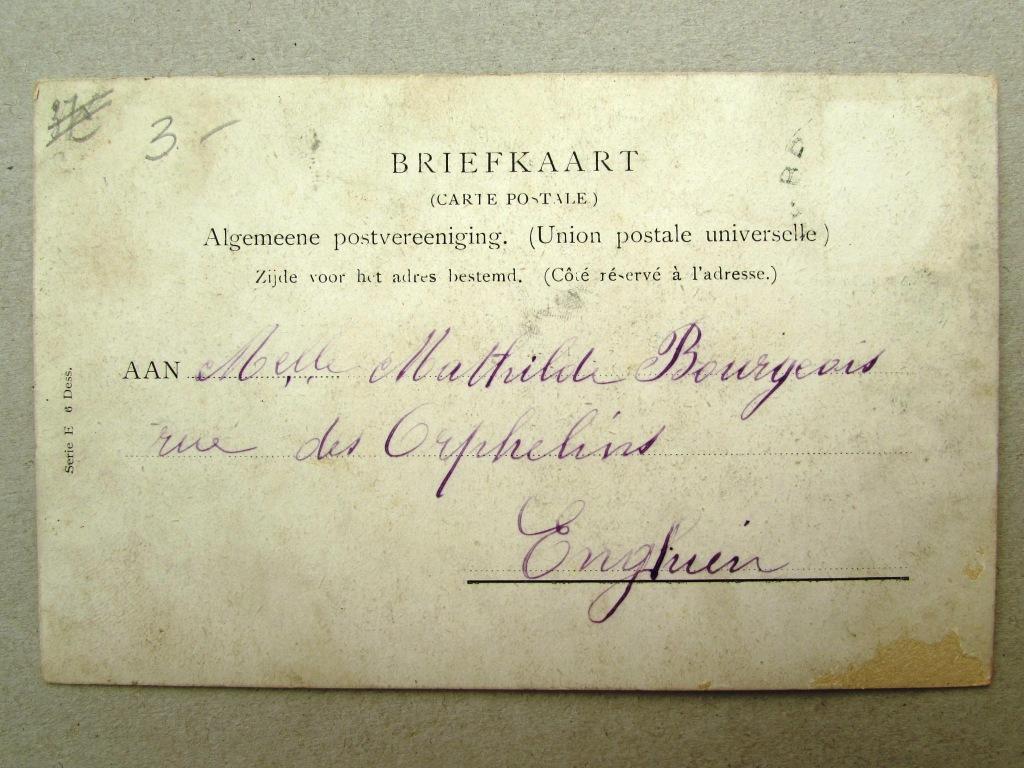 3.-
BRIEFKAART
(CARTE POSTALE)
Algemeene postvereeniging. (Union postale universelle)
Zijde voor het adres bestemd. (Côté réservé à l'adresse.)
AAN Melle Mathilde Bourgeois
rue des Orphelins
Enghien
Serie E 6 Dess.